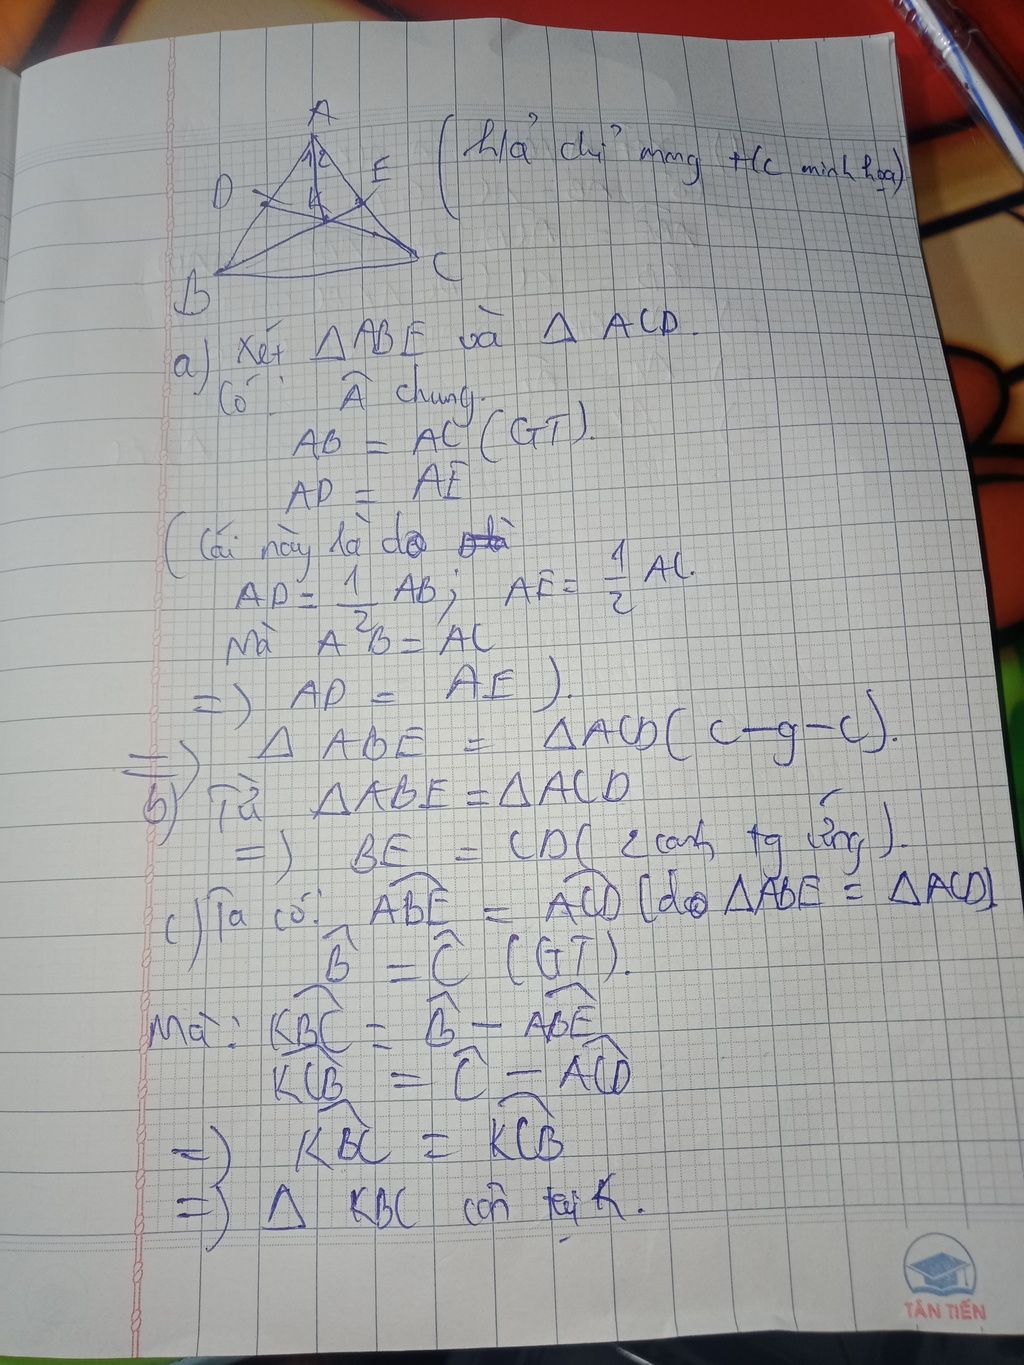 A
1 2
D
E
K
B
C
(h/ả chỉ mang t/c minh họa)
a) Xét ΔABE và Δ ACD.
Có: Â chung.
AB = AC (GT).
AD = AE
(Cái này là do là
AD = 1/2 AB; AE = 1/2 AC.
Mà AB = AC
=) AD = AE ).
=) Δ ABE = ΔACD (c-g-c).
b) Từ ΔABE = ΔACD
=) BE = CD (2 cạnh tg ứng).
c) Ta có: \widehat{ABE} = \widehat{ACD} (do ΔABE = ΔACD)
\widehat{B} = \widehat{C} (GT).
Mà: \widehat{KBC} = \widehat{B} - \widehat{ABE}
\widehat{KCB} = \widehat{C} - \widehat{ACD}
=) \widehat{KBC} = \widehat{KCB}
=) Δ KBC cân tại K.
TÂN TIẾN